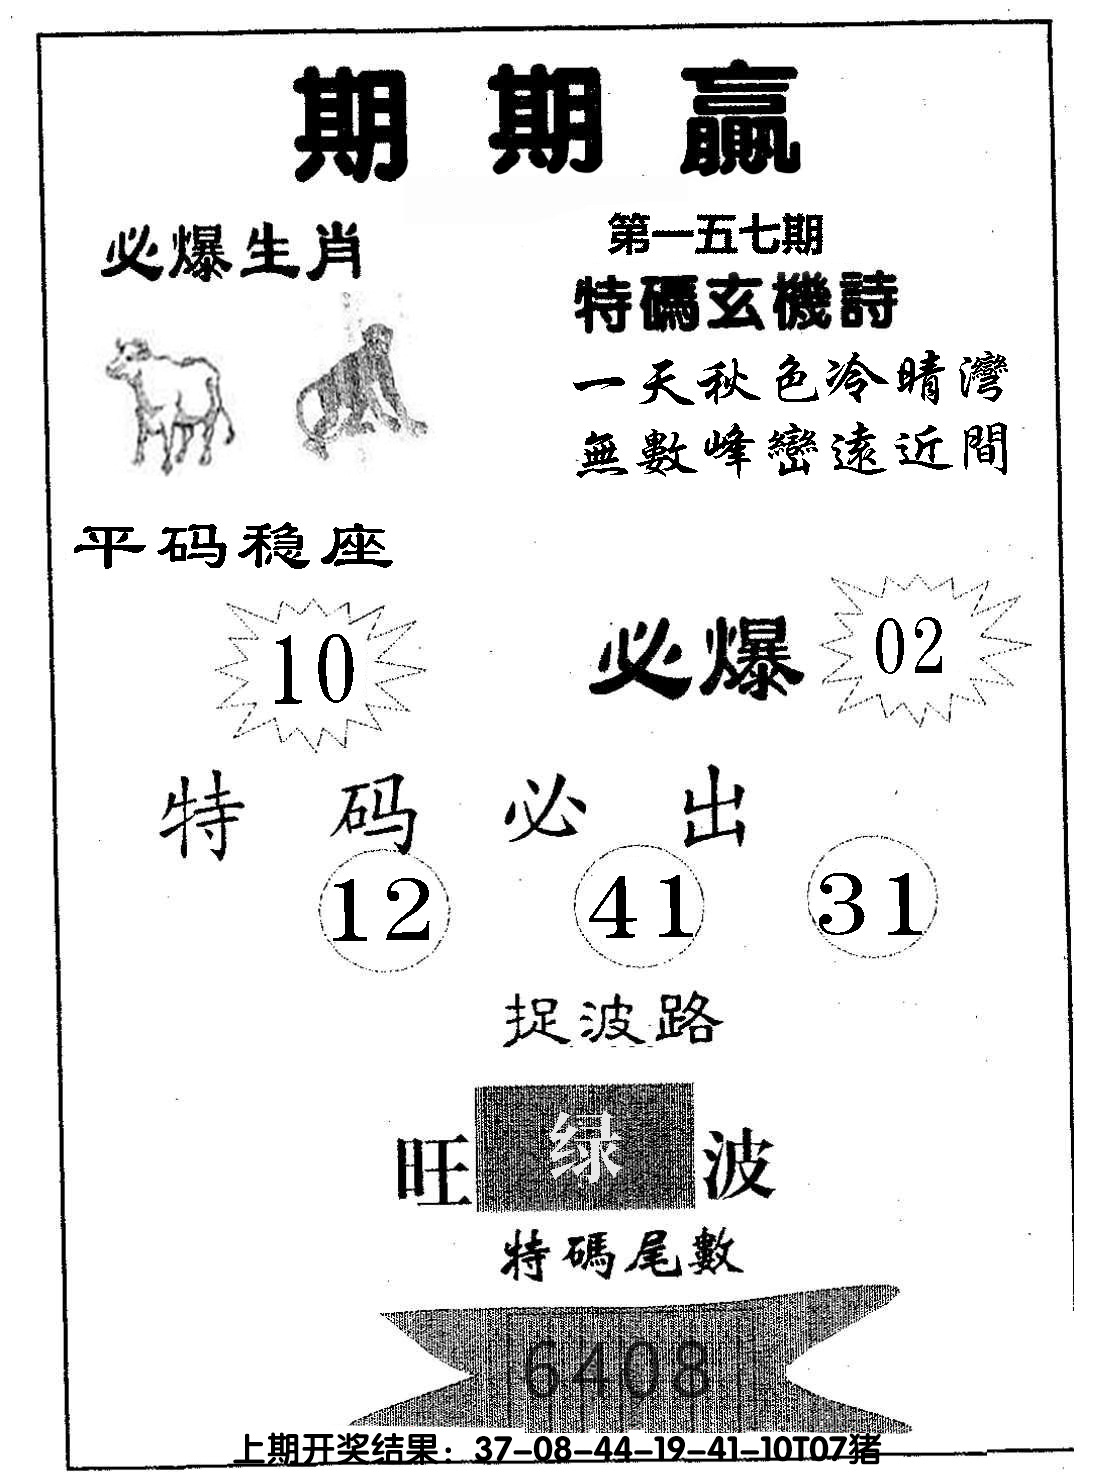 期期赢
必爆生肖
第一五七期
特碼玄機詩
一天秋色冷晴灣
無數峰巒遠近間
平码稳座
10
必爆
02
特码必出
12 41 31
捉波路
旺绿波
特碼尾數
6408
上期开奖结果：37-08-44-19-41-10T07猪